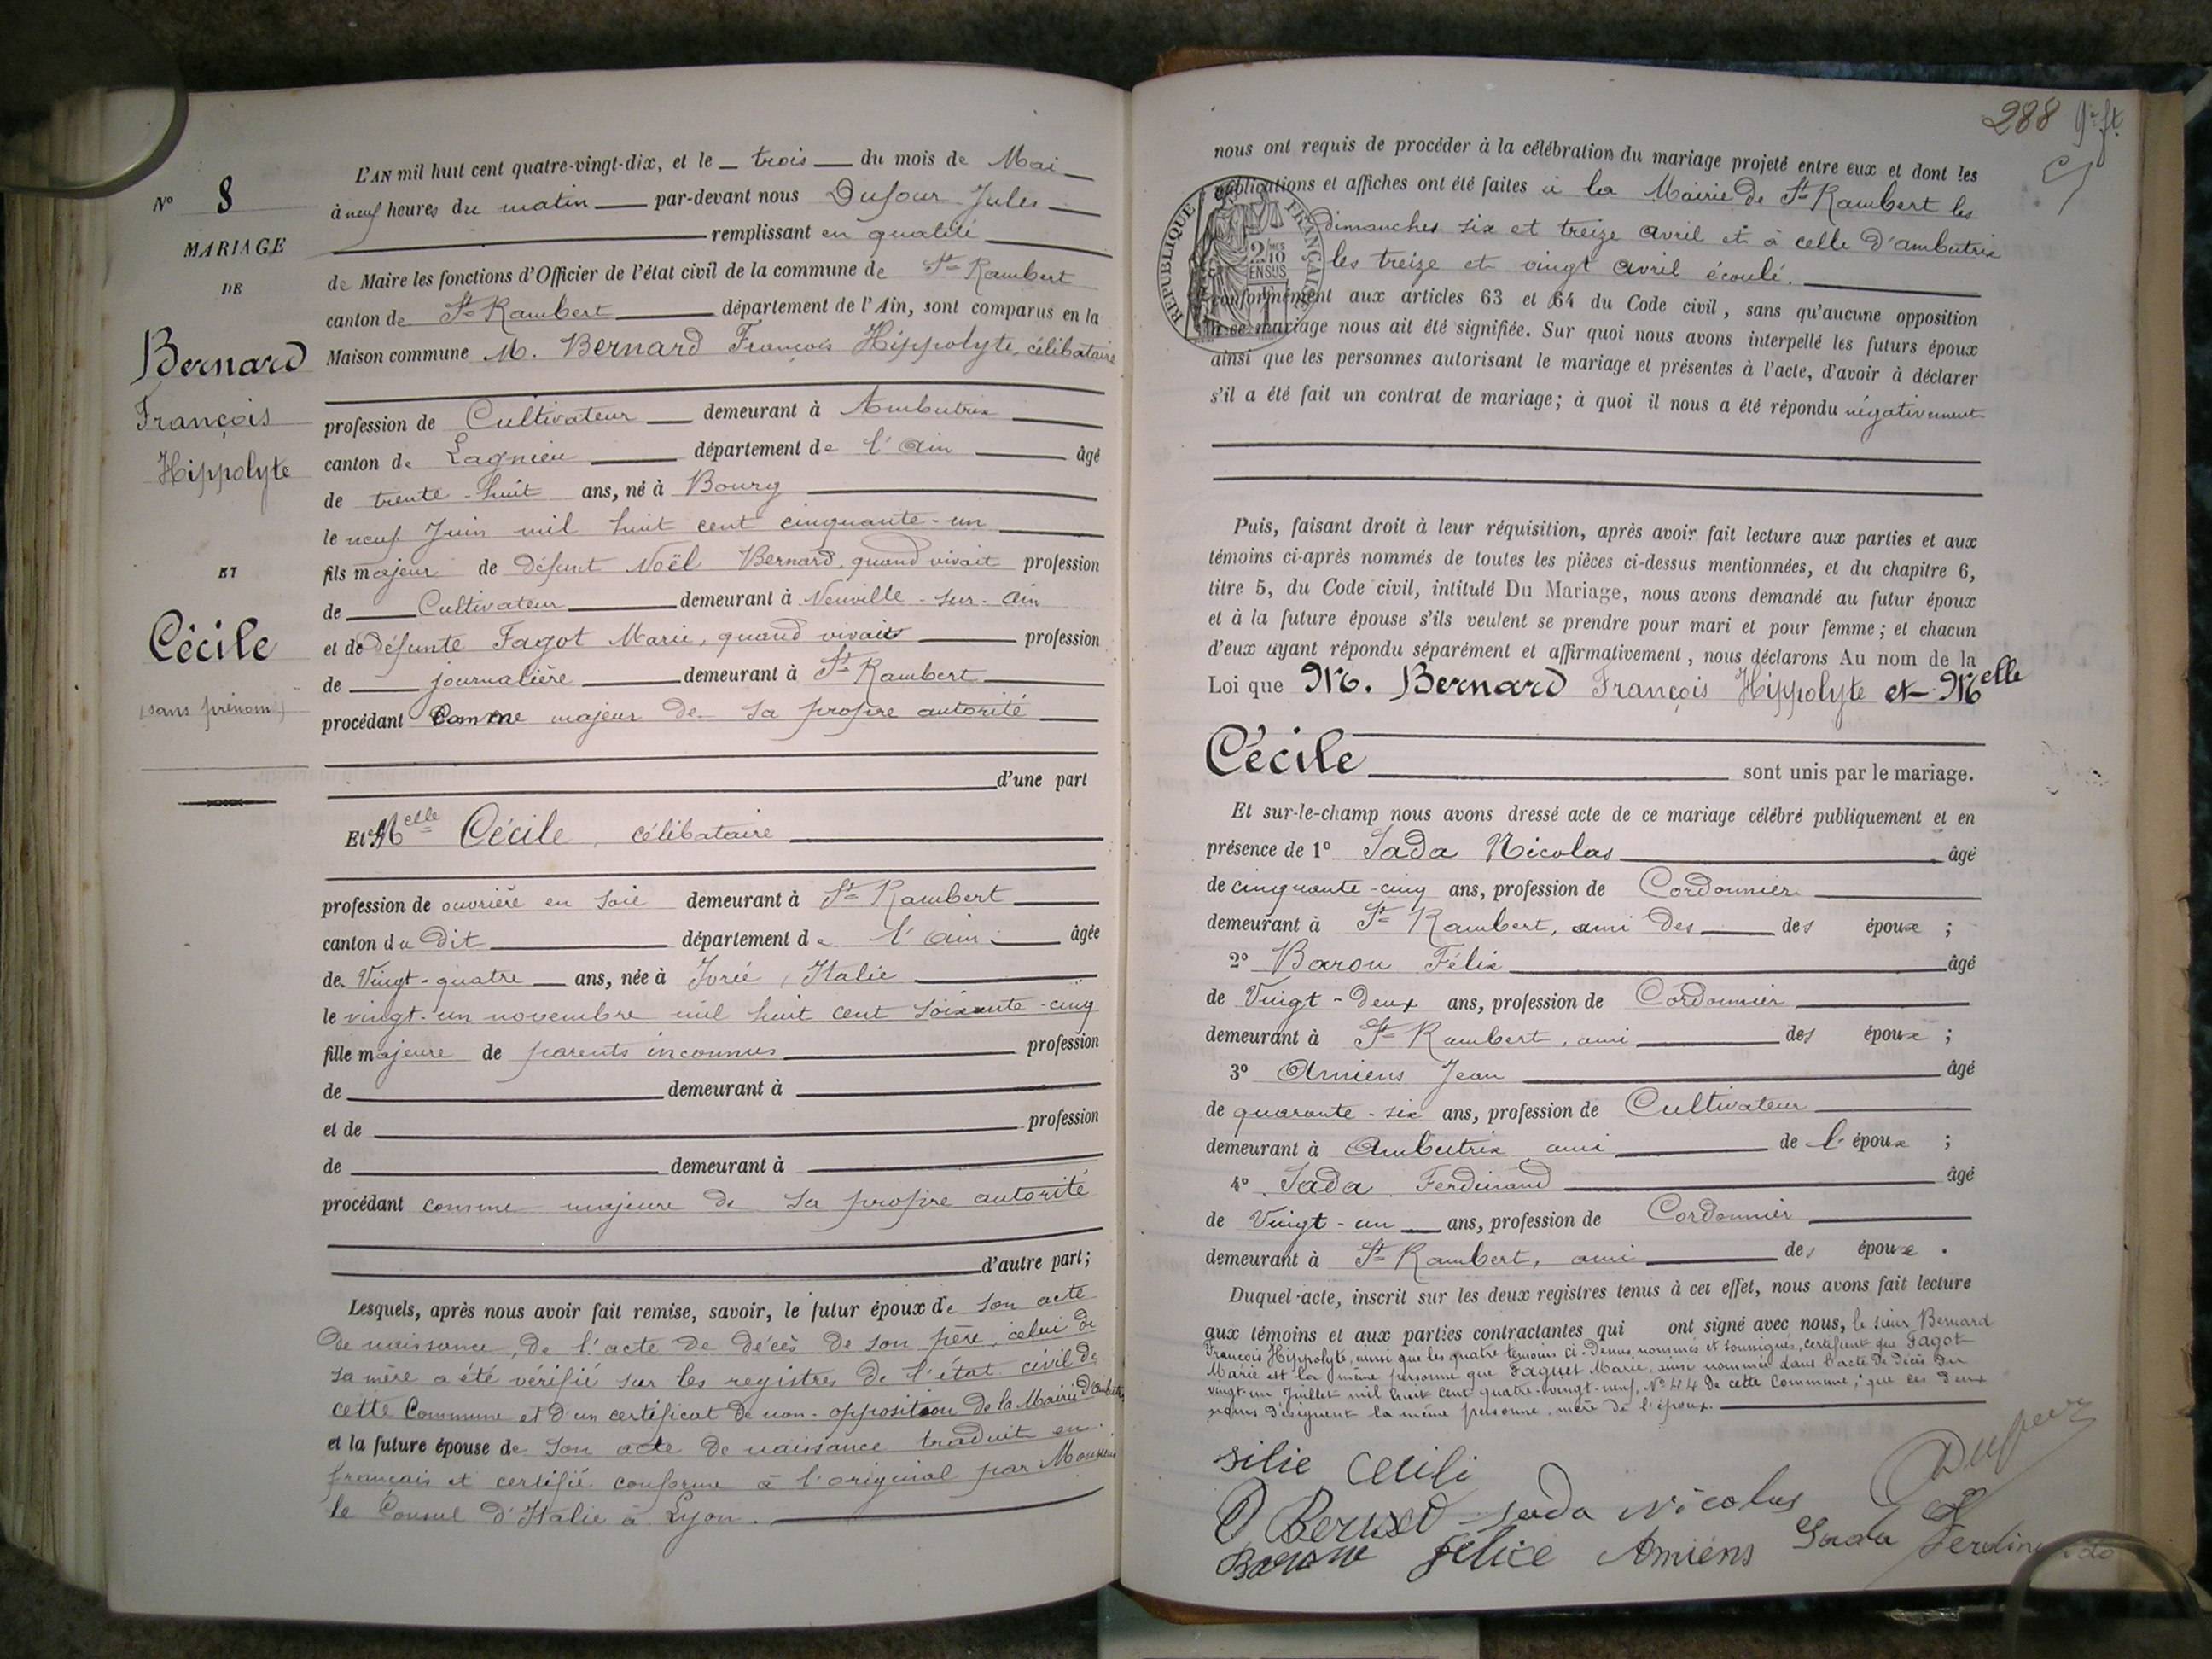 N° 8
MARIAGE
DE
Bernard
François
Hippolyte
ET
Cécile
(sans prénom)
L'AN mil huit cent quatre-vingt-dix, et le trois du mois de Mai
à neuf heures du matin par-devant nous Dufour Jules
remplissant en qualité
de Maire les fonctions d'Officier de l'état civil de la commune de St Rambert
canton de St Rambert département de l'Ain, sont comparus en la
Maison commune M. Bernard François Hippolyte, célibataire
profession de Cultivateur demeurant à Ambutrix
canton de Lagnieu département de l'Ain âgé
de trente-huit ans, né à Bourg
le neuf Juin mil huit cent cinquante-un
fils majeur de défunt Noël Bernard, quand vivait profession
de Cultivateur demeurant à Neuville-sur-Ain
et de défunte Fagot Marie, quand vivait profession
de journalière demeurant à St Rambert
procédant comme majeur de sa propre autorité
d'une part
Et Melle Cécile, célibataire
profession de ouvrière en soie demeurant à St Rambert
canton du dit département de l'Ain âgée
de Vingt-quatre ans, née à Ivrée, Italie
le vingt-un novembre mil huit cent soixante-cinq
fille majeure de parents inconnus profession
de demeurant à
et de profession
de demeurant à
procédant comme majeure de sa propre autorité
d'autre part;
Lesquels, après nous avoir fait remise, savoir, le futur époux de son acte
de naissance, de l'acte de décès de son père, celui de
sa mère a été vérifié sur les registres de l'état civil de
cette Commune et d'un certificat de non-opposition de la Mairie d'Ambutrix
et la future épouse de son acte de naissance traduit en
français et certifié conforme à l'original par Monsieur
le Consul d'Italie à Lyon.
288
nous ont requis de procéder à la célébration du mariage projeté entre eux et dont les
publications et affiches ont été faites à la Mairie de St Rambert les
dimanches six et treize avril et à celle d'ambutrix
les treize et vingt avril écoulé.
RÉPUBLIQUE FRANÇAISE
2/10
EN SUS
conformément aux articles 63 et 64 du Code civil, sans qu'aucune opposition
à ce mariage nous ait été signifiée. Sur quoi nous avons interpellé les futurs époux
ainsi que les personnes autorisant le mariage et présentes à l'acte, d'avoir à déclarer
s'il a été fait un contrat de mariage; à quoi il nous a été répondu négativement
Puis, faisant droit à leur réquisition, après avoir fait lecture aux parties et aux
témoins ci-après nommés de toutes les pièces ci-dessus mentionnées, et du chapitre 6,
titre 5, du Code civil, intitulé Du Mariage, nous avons demandé au futur époux
et à la future épouse s'ils veulent se prendre pour mari et pour femme; et chacun
d'eux ayant répondu séparément et affirmativement, nous déclarons Au nom de la
Loi que M. Bernard François Hippolyte et Melle
Cécile sont unis par le mariage.
Et sur-le-champ nous avons dressé acte de ce mariage célébré publiquement et en
présence de 1° Sada Nicolas âgé
de cinquante-cinq ans, profession de Cordonnier
demeurant à St Rambert, ami des des époux ;
2° Baron Félix âgé
de Vingt-deux ans, profession de Cordonnier
demeurant à St Rambert, ami des époux ;
3° Amiens Jean âgé
de quarante-six ans, profession de Cultivateur
demeurant à Ambutrix ami de l'époux ;
4° Sada Ferdinand âgé
de Vingt-un ans, profession de Cordonnier
demeurant à St Rambert, ami des époux.
Duquel acte, inscrit sur les deux registres tenus à cet effet, nous avons fait lecture
aux témoins et aux parties contractantes qui ont signé avec nous, le sieur Bernard
François Hippolyte, ainsi que les quatre témoins ci-dessus nommés et soussignés, certifient que Fagot
Marie est la même personne que Faguet Marie, ainsi nommée dans l'acte de décès du
vingt-un Juillet mil huit cent quatre-vingt-neuf, N° 44 de cette Commune; que ces deux
noms désignent la même personne, mère de l'époux.
silie Cecili
Dufour
Bernard Sada Nicolas
Barone Felice Amiens Sada Ferdinando